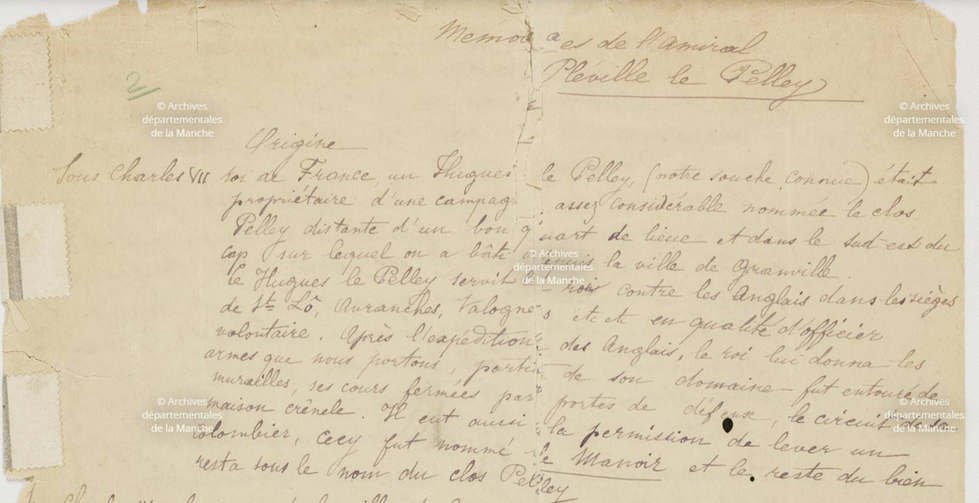 Mémoires de l'Amiral
Pléville le Pelley
2
Origine
Sous Charles VII roi de France un Hugues le Pelley, (notre souche connue) était
propriétaire d'une campagne assez considerable nommée le clos
Pelley distante d'un bon quart de lieue et dans le sud est du
cap sur lequel on a bâti depuis la ville de Granville.
le Hugues le Pelley servit rois contre les Anglais dans les sièges
de St Lô, Avranches, Valognes etc etc en qualité d'officier
volontaire. Après l'expédition des Anglais, le roi lui donna les
armes que nous portons, partie de son domaine fut entouré de
murailles, ses cours fermées par portes de défense, le circuit
maison crênele. Il eut aussi la permission de lever un
colombier, cecy fut nommé le Manoir et le reste du bien
resta sous le nom du clos Pelley
© Archives
départementales
de la Manche
© Archives
départementales
de la Manche
© Archives
départementales
de la Manche
© Archives
départementales
de la Manche
© Archives
départementales
de la Manche